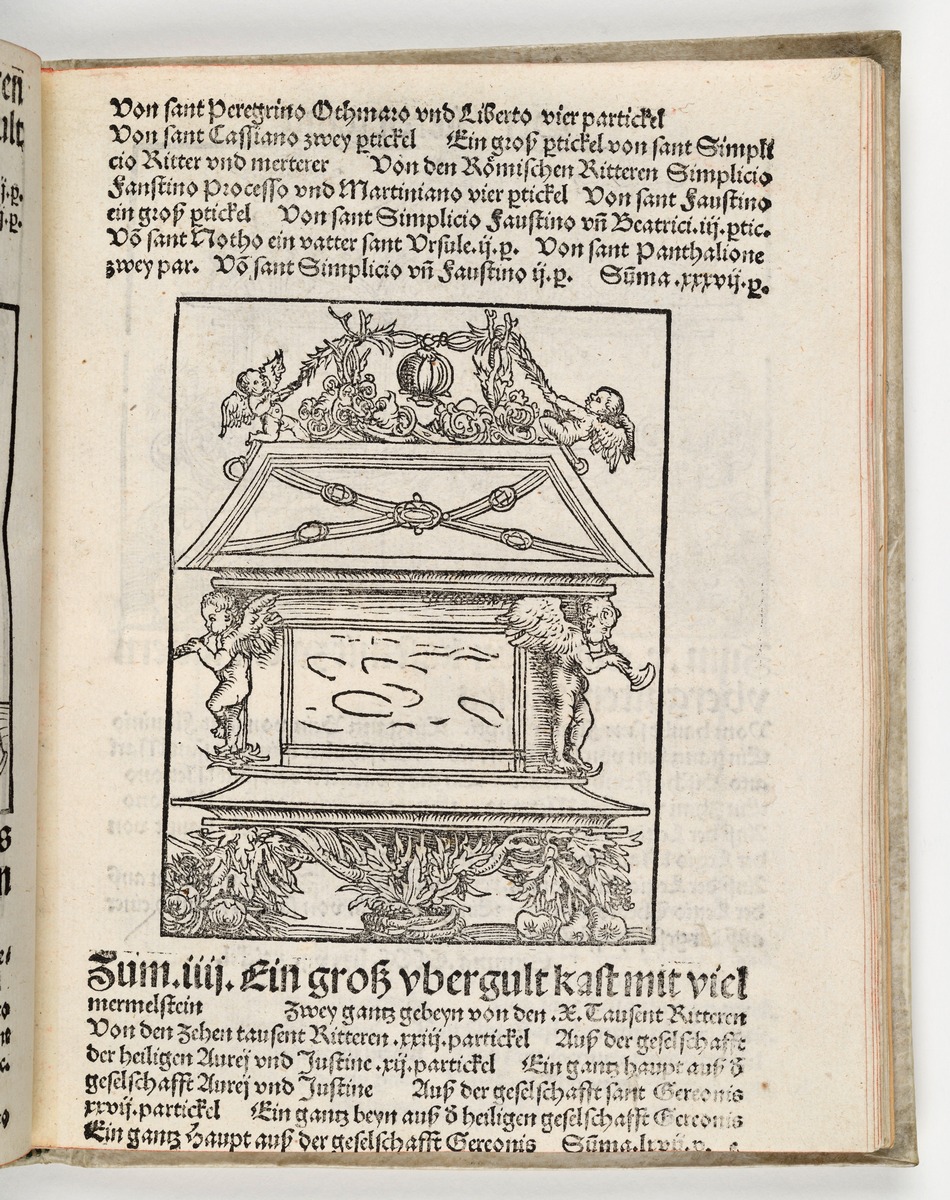 Von sant Peregrino Othmaro vnd Liberto vier partickel
Von sant Cassiano zwey ꝑtickel Ein groß ꝑtickel von sant Simpli
cio Ritter vnd merterer Von den Römischen Ritteren Simplicio
Faustino Processo vnd Martiniano vier ꝑtickel Von sant Faustino
ein groß ꝑtickel Von sant Simplicio Faustino vñ Beatrici.iij.ꝑtic.
Võ sant Notho ein vatter sant Vrsule.ij.ꝑ. Von sant Panthalione
zwey par. Võ sant Simplicio vñ Faustino ij.ꝑ. Sũma .xxxvij.ꝑ.
Zum.iiij. Ein groß vbergult kast mit viel
mermelstein Zwey gantz gebeyn von den .X. Tausent Ritteren
Von den Zehen tausent Ritteren .xxiij.partickel Auß der geselschafft
der heiligen Aurej vnd Justine .xij.partickel Ein gantz haupt auß d̕
geselschafft Aurej vnd Justine Auß der geselschafft sant Gereonis
xxvij.partickel Ein gantz beyn auß d̕ heiligen geselschafft Gereonis
Ein gantz Haupt auß der geselschafft Gereonis Sũma.lxvij.ꝑ.